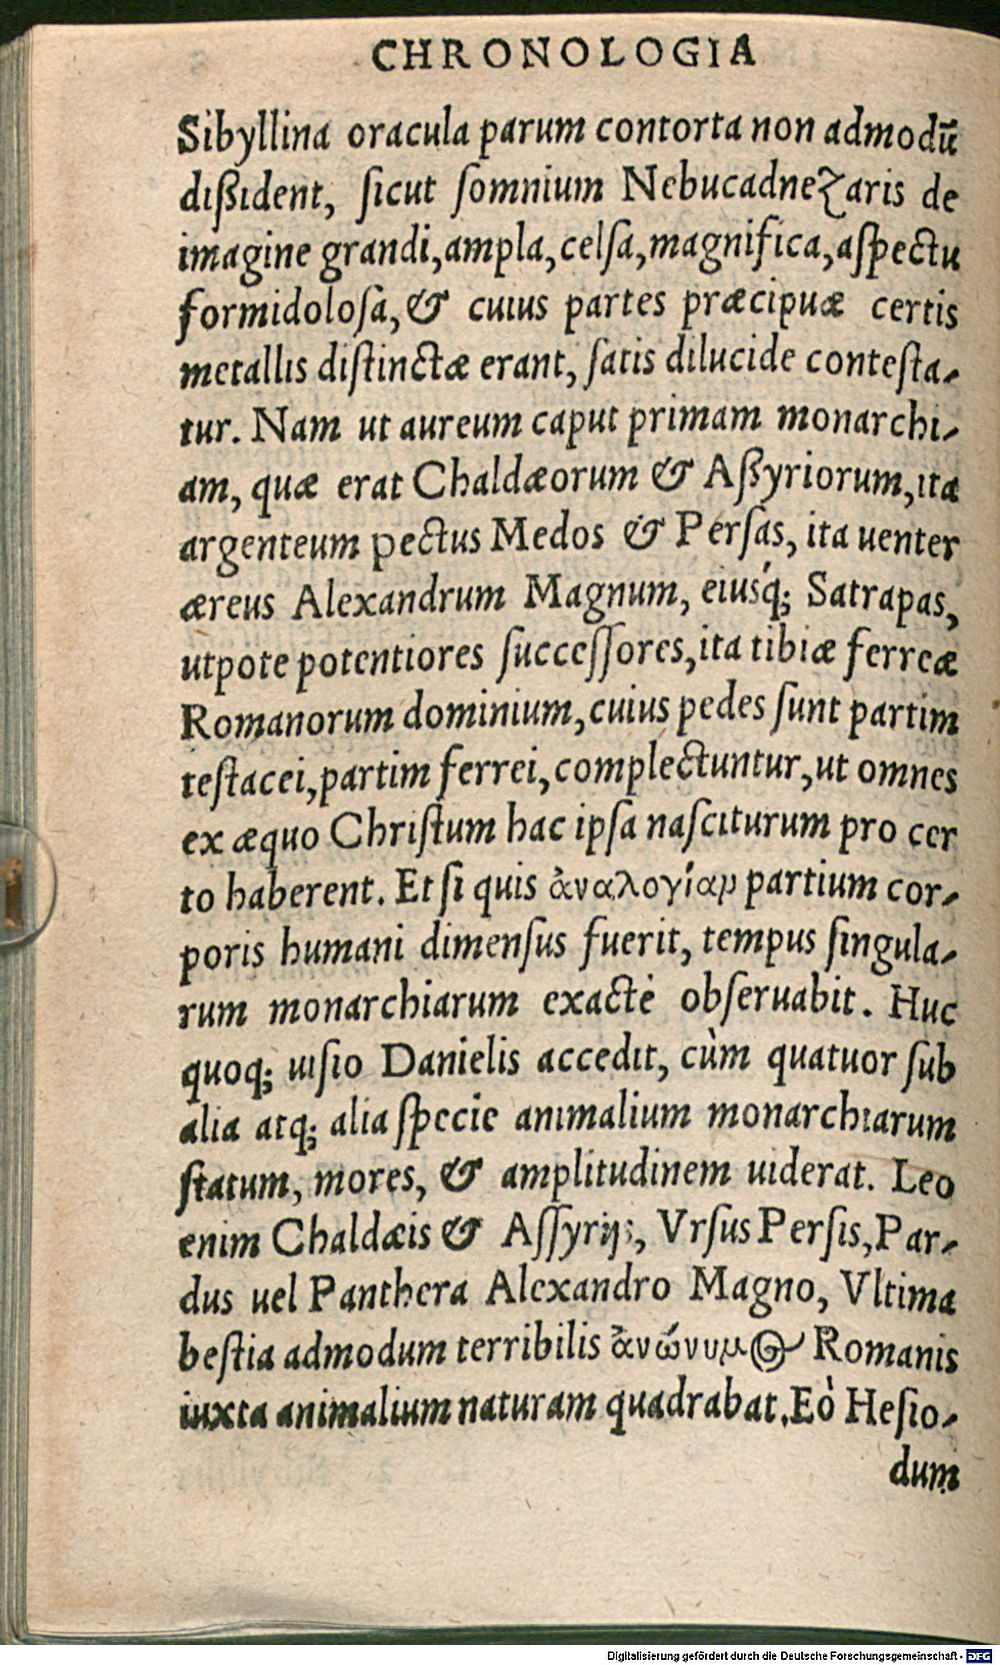 CHRONOLOGIA
Sibyllina oracula parum contorta non admodū
dißident, ſicut ſomnium Nebucadnezaris de
imagine grandi, ampla, celſa, magnifica, aſpectu
formidoloſa, & cuius partes præcipuæ certis
metallis diſtinctæ erant, ſatis dilucide conteſta-
tur. Nam ut aureum caput primam monarchi-
am, quæ erat Chaldæorum & Aßyriorum, ita
argenteum pectus Medos & Perſas, ita uenter
æreus Alexandrum Magnum, eiusq́; Satrapas,
utpote potentiores ſucceſſores, ita tibiæ ferreæ
Romanorum dominium, cuius pedes ſunt partim
teſtacei, partim ferrei, complectuntur, ut omnes
ex æquo Chriſtum hac ipſa naſciturum pro cer
to haberent. Et ſi quis ἀναλογίαν partium cor-
poris humani dimenſus fuerit, tempus ſingula-
rum monarchiarum exactè obſeruabit. Huc
quoq; uiſio Danielis accedit, cùm quatuor ſub
alia atq; alia ſpecie animalium monarchiarum
ſtatum, mores, & amplitudinem uiderat. Leo
enim Chaldæis & Aſſyrijs, Vrſus Perſis, Par-
dus uel Panthera Alexandro Magno, Vltima
beſtia admodum terribilis ἀνώνυμος Romanis
iuxta animalium naturam quadrabat. Eò Heſio-
dum
Digitalisierung gefördert durch die Deutsche Forschungsgemeinschaft - DFG